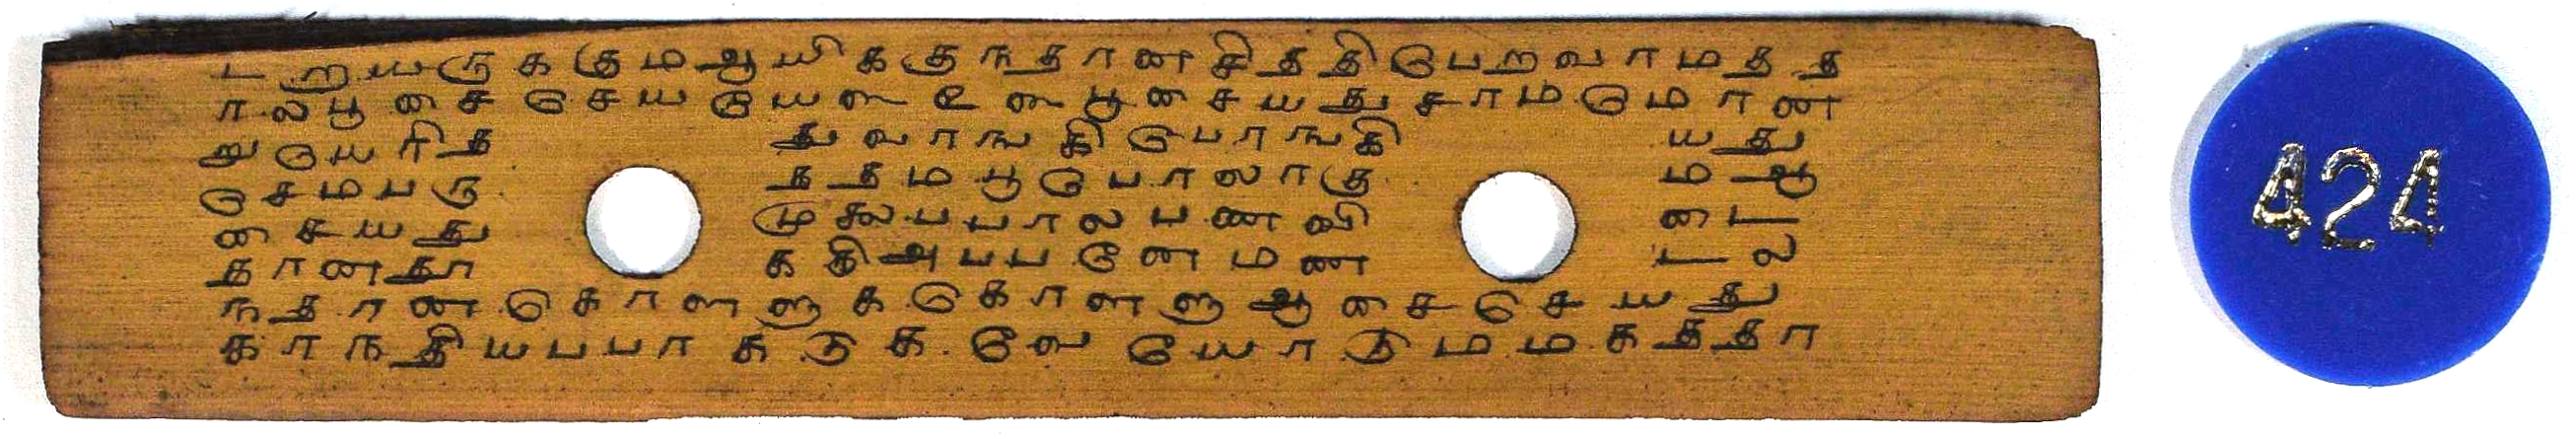 டறயருககுமஆயிககுநதானசிததிபெறவாமதத
ாலபூசைசெயயேயஉனைபூசையதுசாமமோன
றுயேரித துவாஙகிபொஙகி யது
செமபரு தமபூபோலாகு மஆ
சையது முலைபபாலபணவி டை
தானதூ கதிஅபபனேமண டல
நதானகொளளுககொளளுஆசைசெயது
காநதியபபாகடுக வேயோடுமமகததா
424